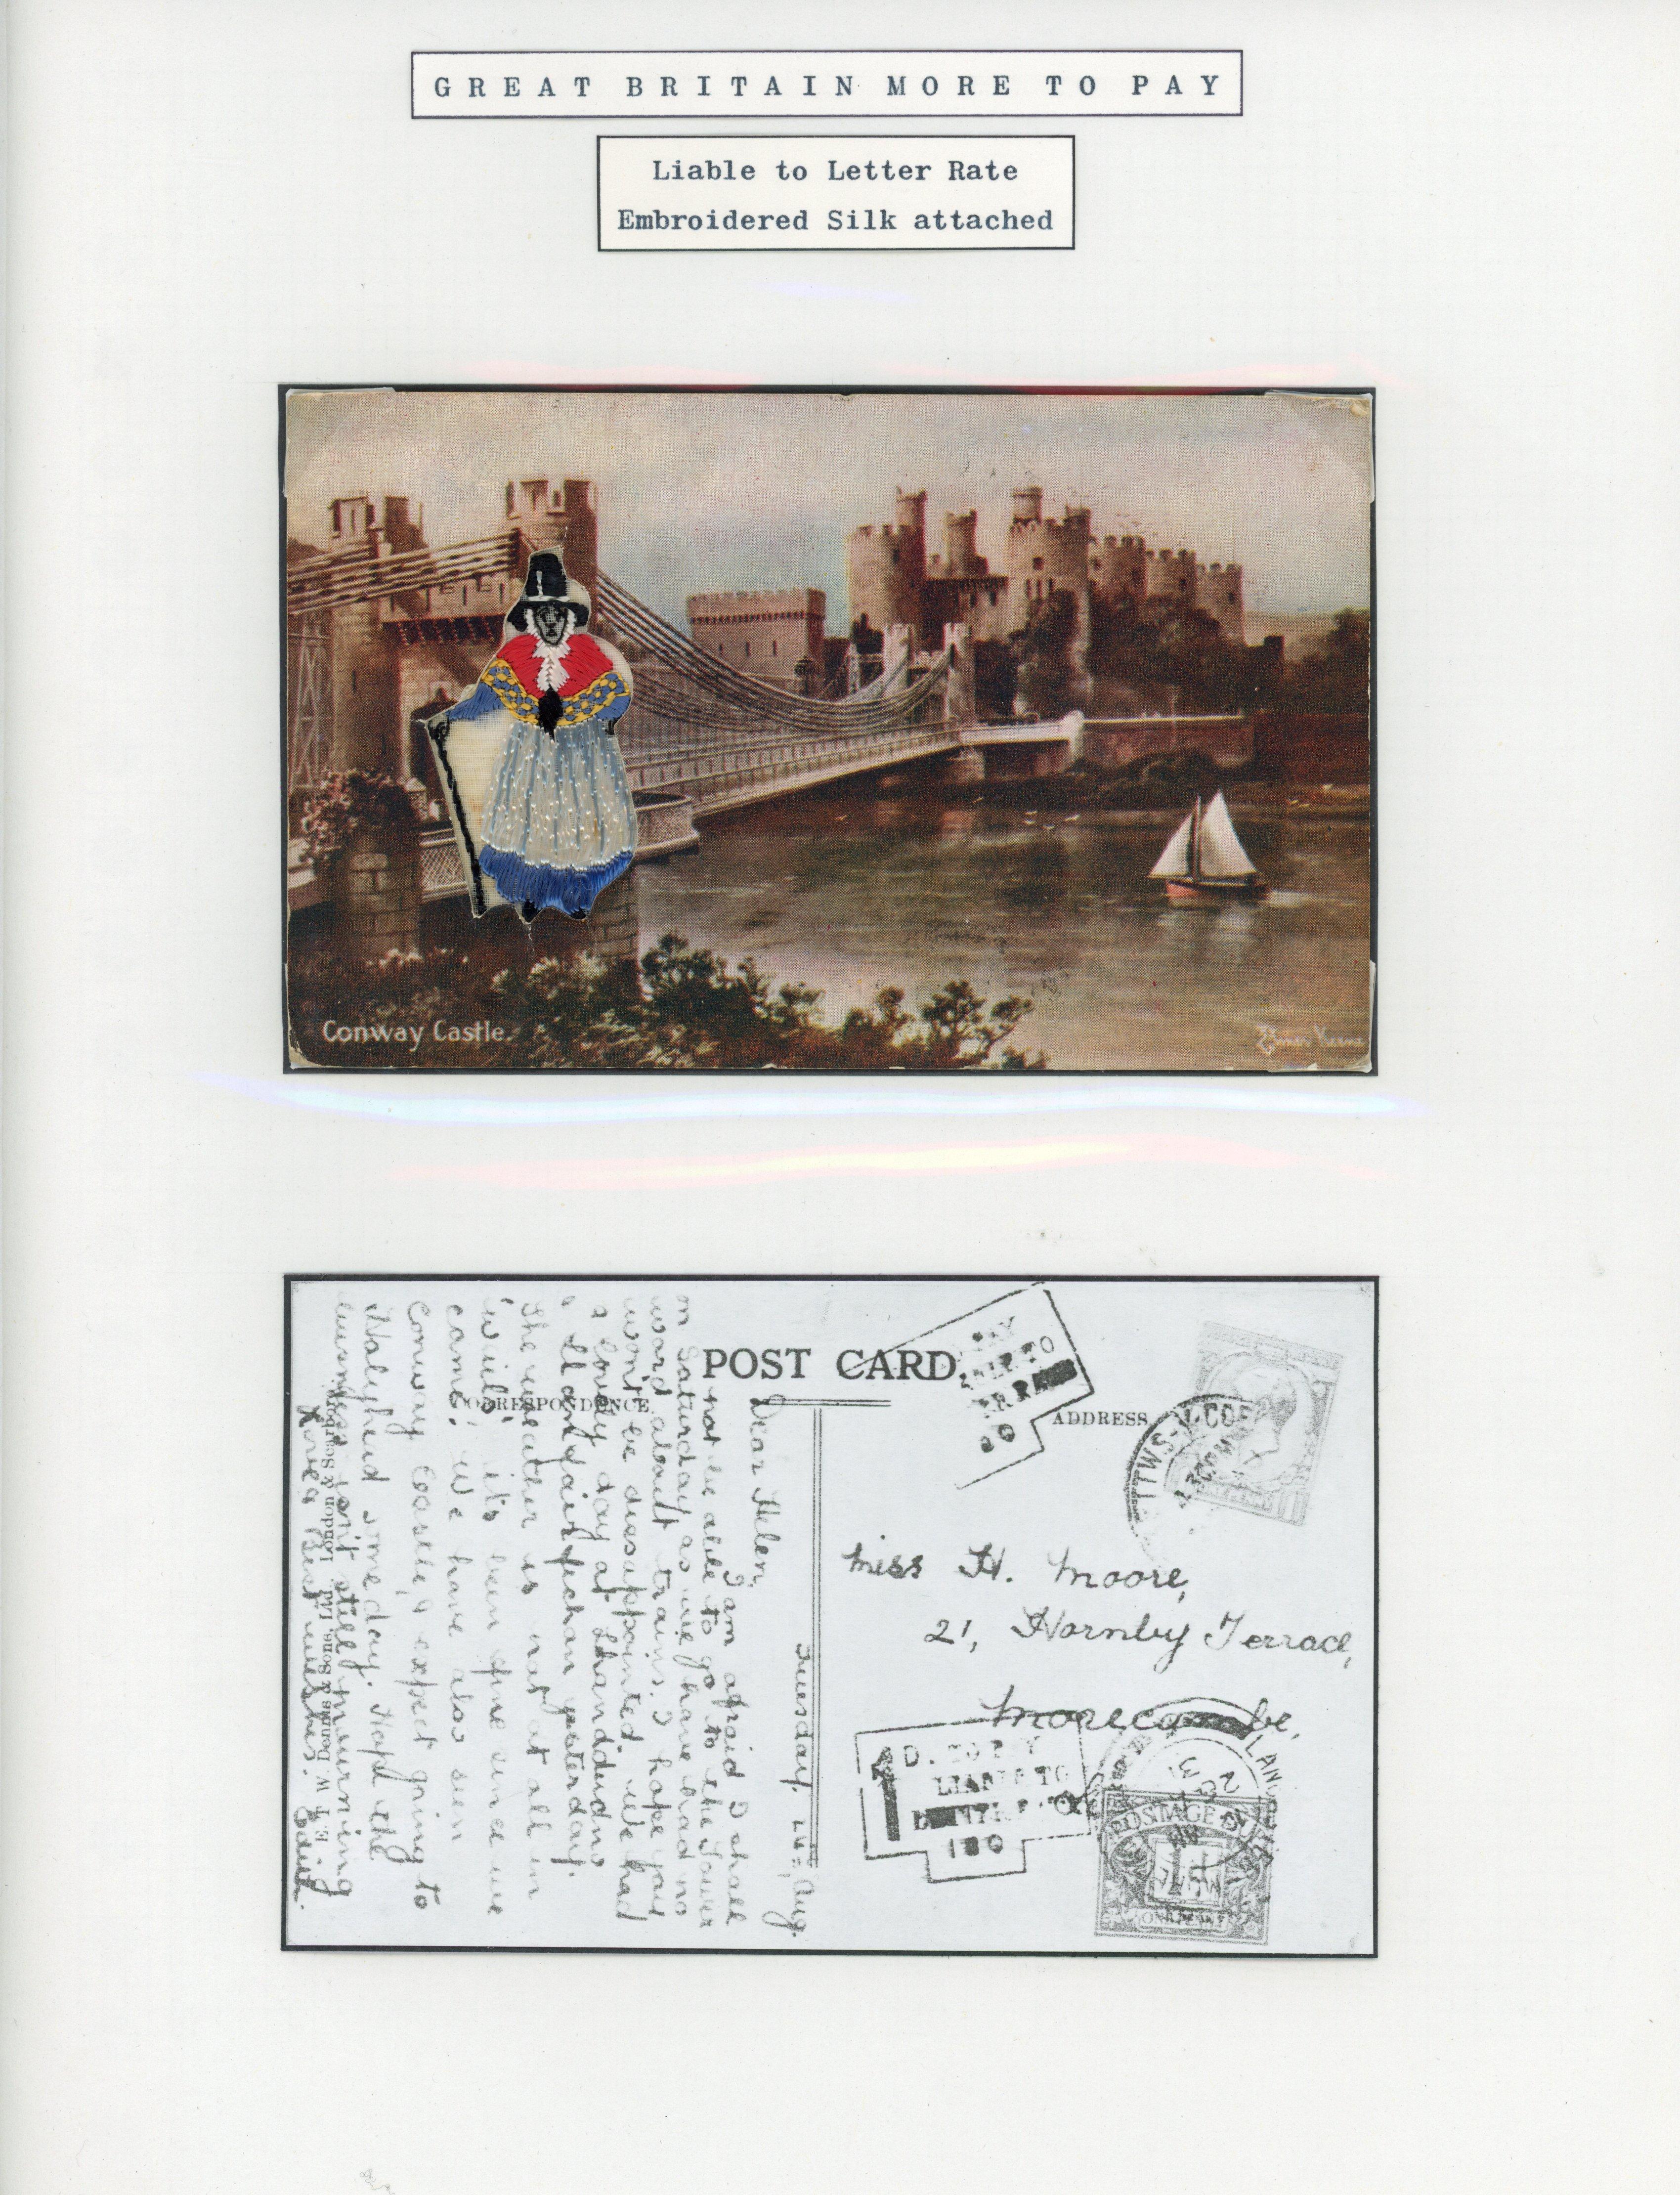 GREAT BRITAIN MORE TO PAY
Liable to Letter Rate
Embroidered Silk attached
Conway Castle.
Elmer Keene
POST CARD.
CORRESPONDENCE.
ADDRESS
Tuesday, Aug.
Dear Helen,
I am afraid I shall
not be able to go to the Tower
on Saturday as we have had no
word about trains. I hope you
won't be disappointed. We had
a lovely day at Llandudno
& Llanfairfechan yesterday.
The weather is not at all in
it's been fine since we
came. We have also seen
Conway Castle, & expect going to
Holyhead some day. Hope the
isn't still mourning
Love & Best wishes. Edie.
E. T. W. Dennis & Sons, Ltd. London & Scarboro'
Miss H. Moore,
21, Hornby Terrace,
Morecambe,
LIABLE TO
POSTAGE DUE
1
ONE PENNY